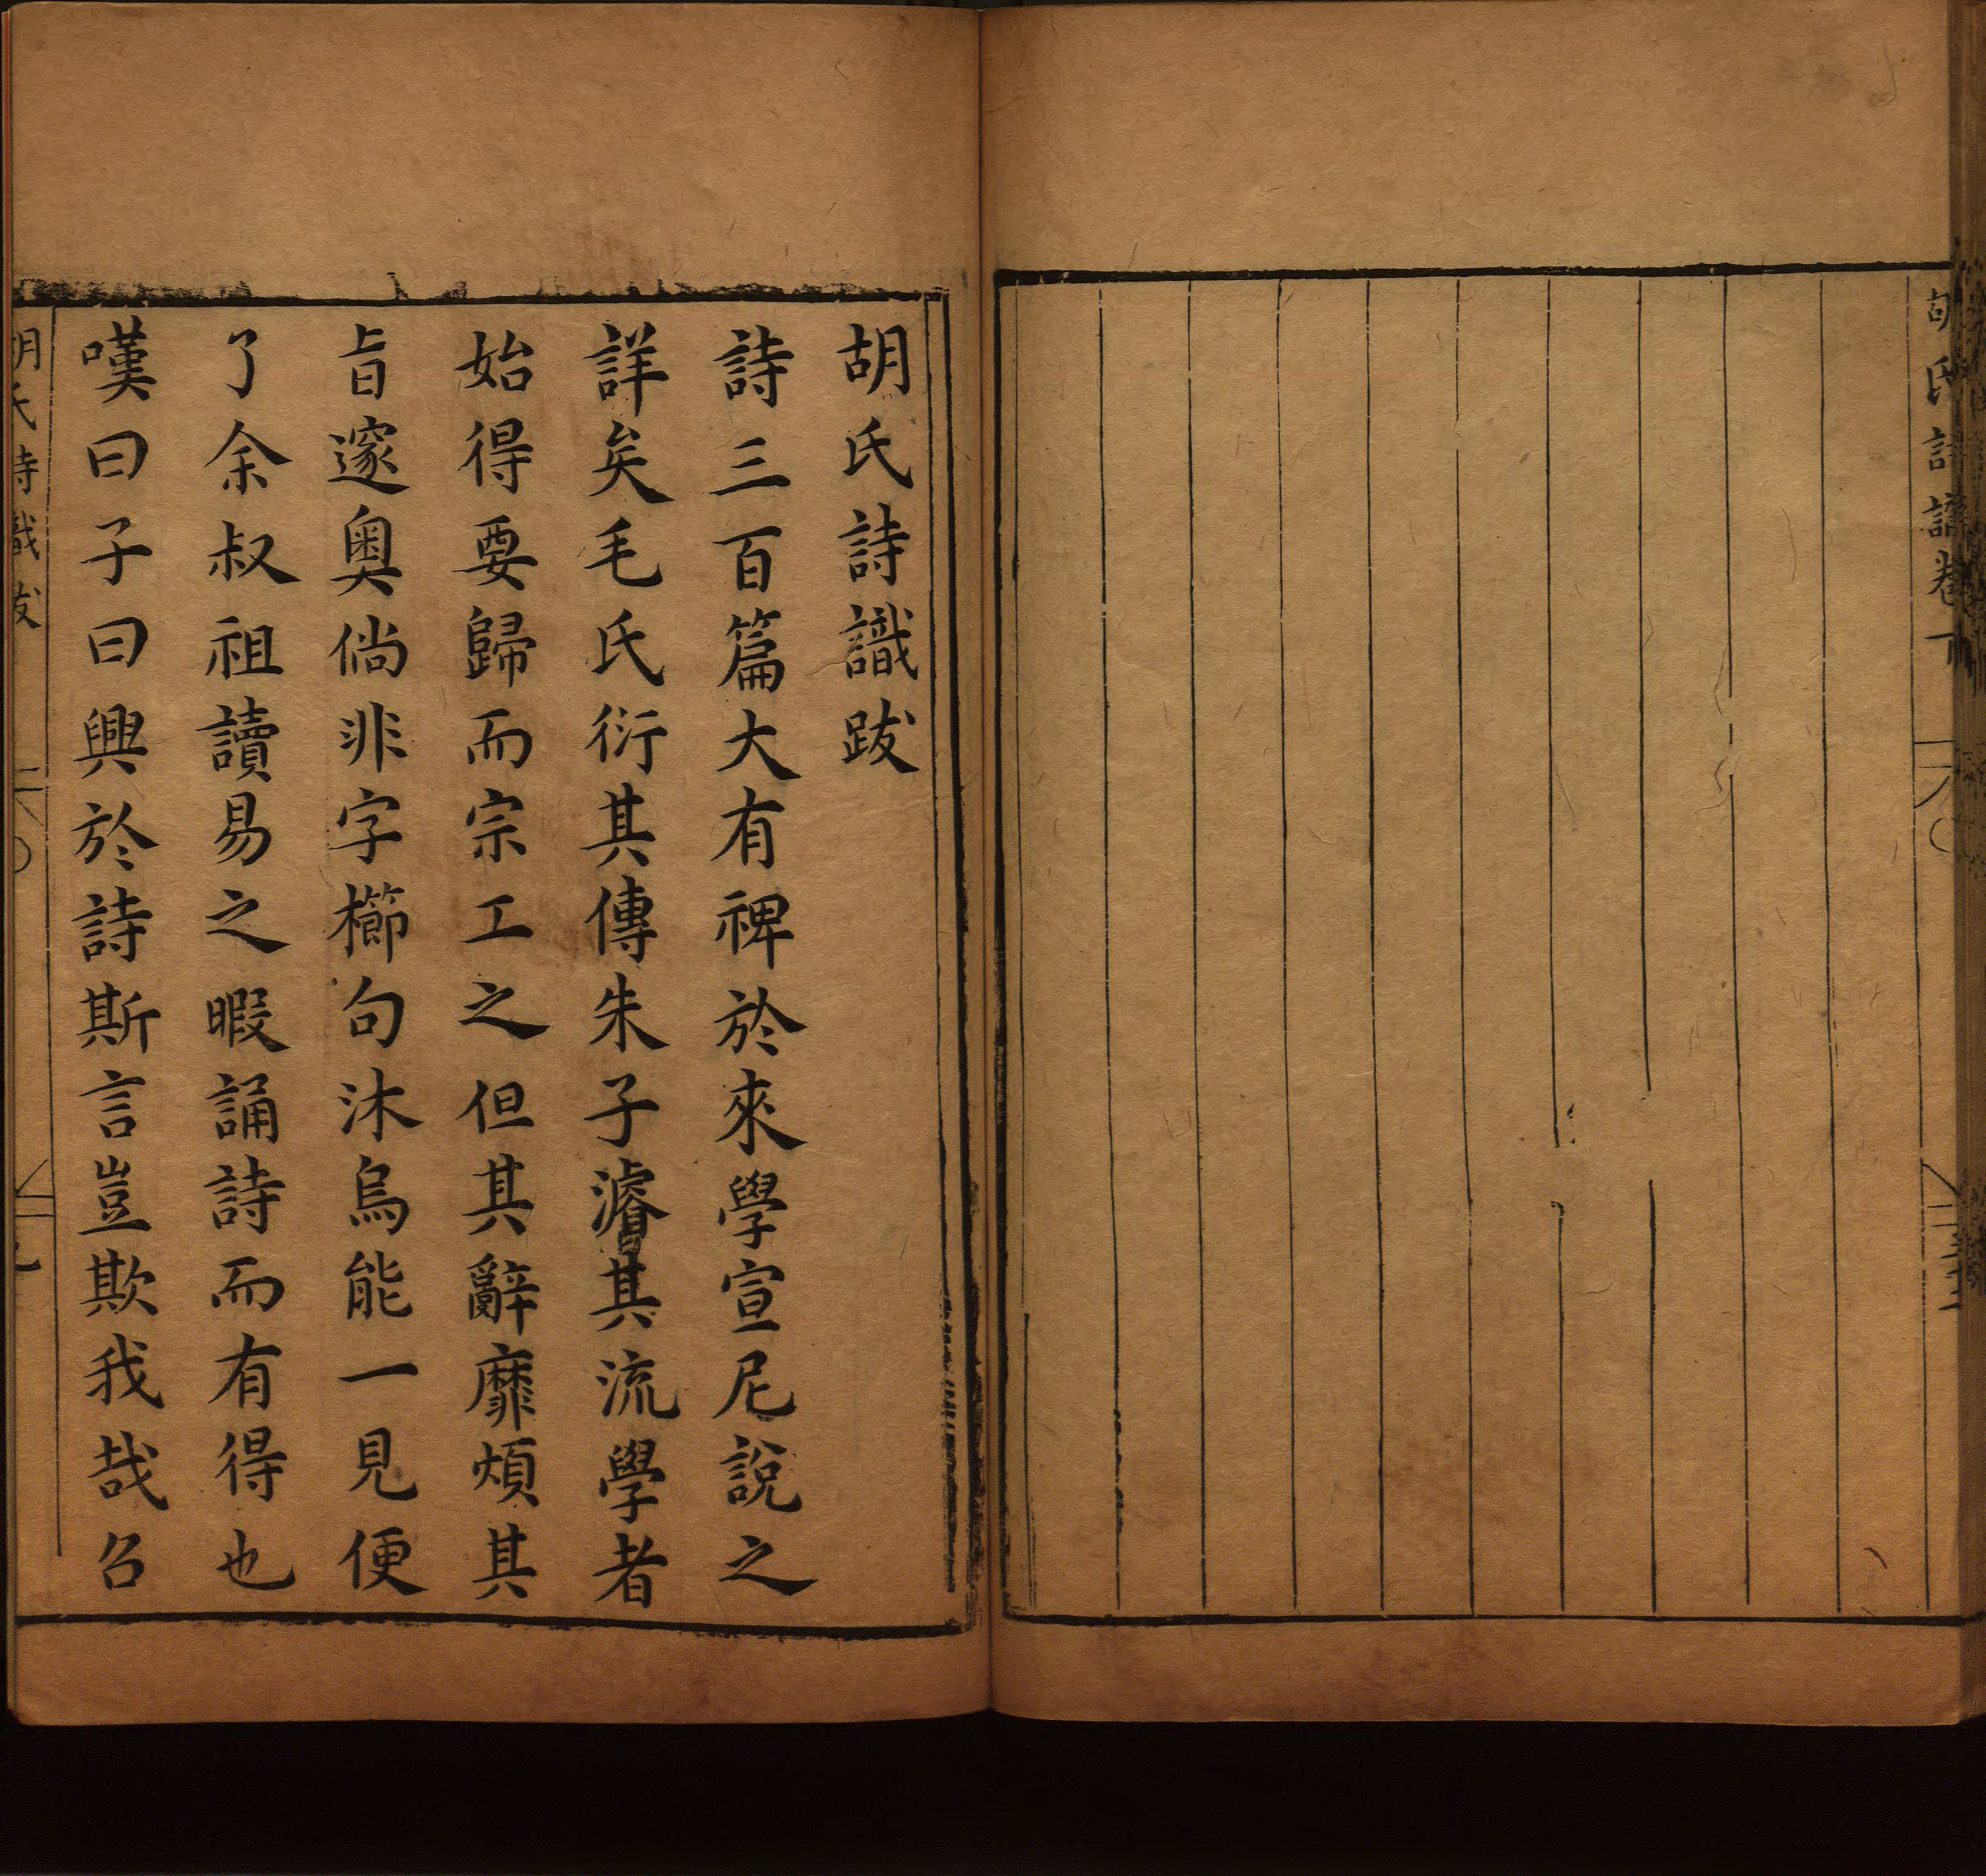 胡氏詩識卷下
胡氏詩識跋
詩三百篇大有裨於來學宣尼說之
詳矣毛氏衍其傳朱子濬其流學者
始得要歸而宗工之但其辭靡煩其
旨邃奧倘非字櫛句沐烏能一見便
了余叔祖讀易之暇誦詩而有得也
嘆曰子曰興於詩斯言豈欺我哉召
胡氏詩識跋